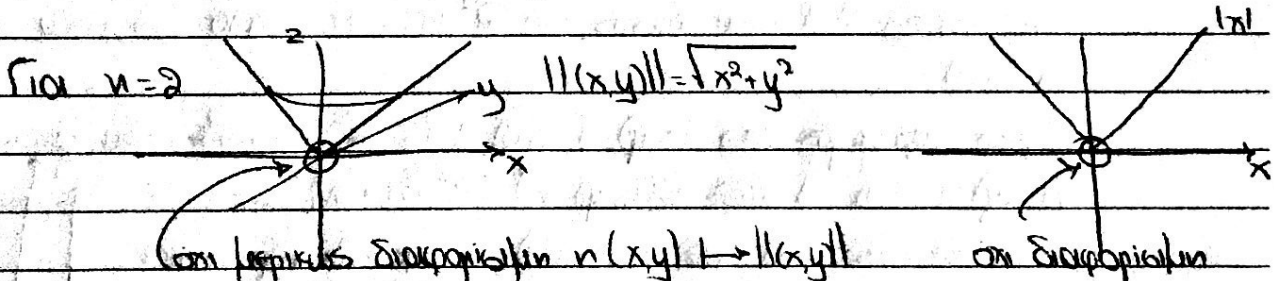 z |x|
Για n=2 y ||(x,y)||=√x²+y²
x x
όχι μερικώς διαφορίσιμη η (x,y) ↦ ||(x,y)|| όχι διαφορίσιμη